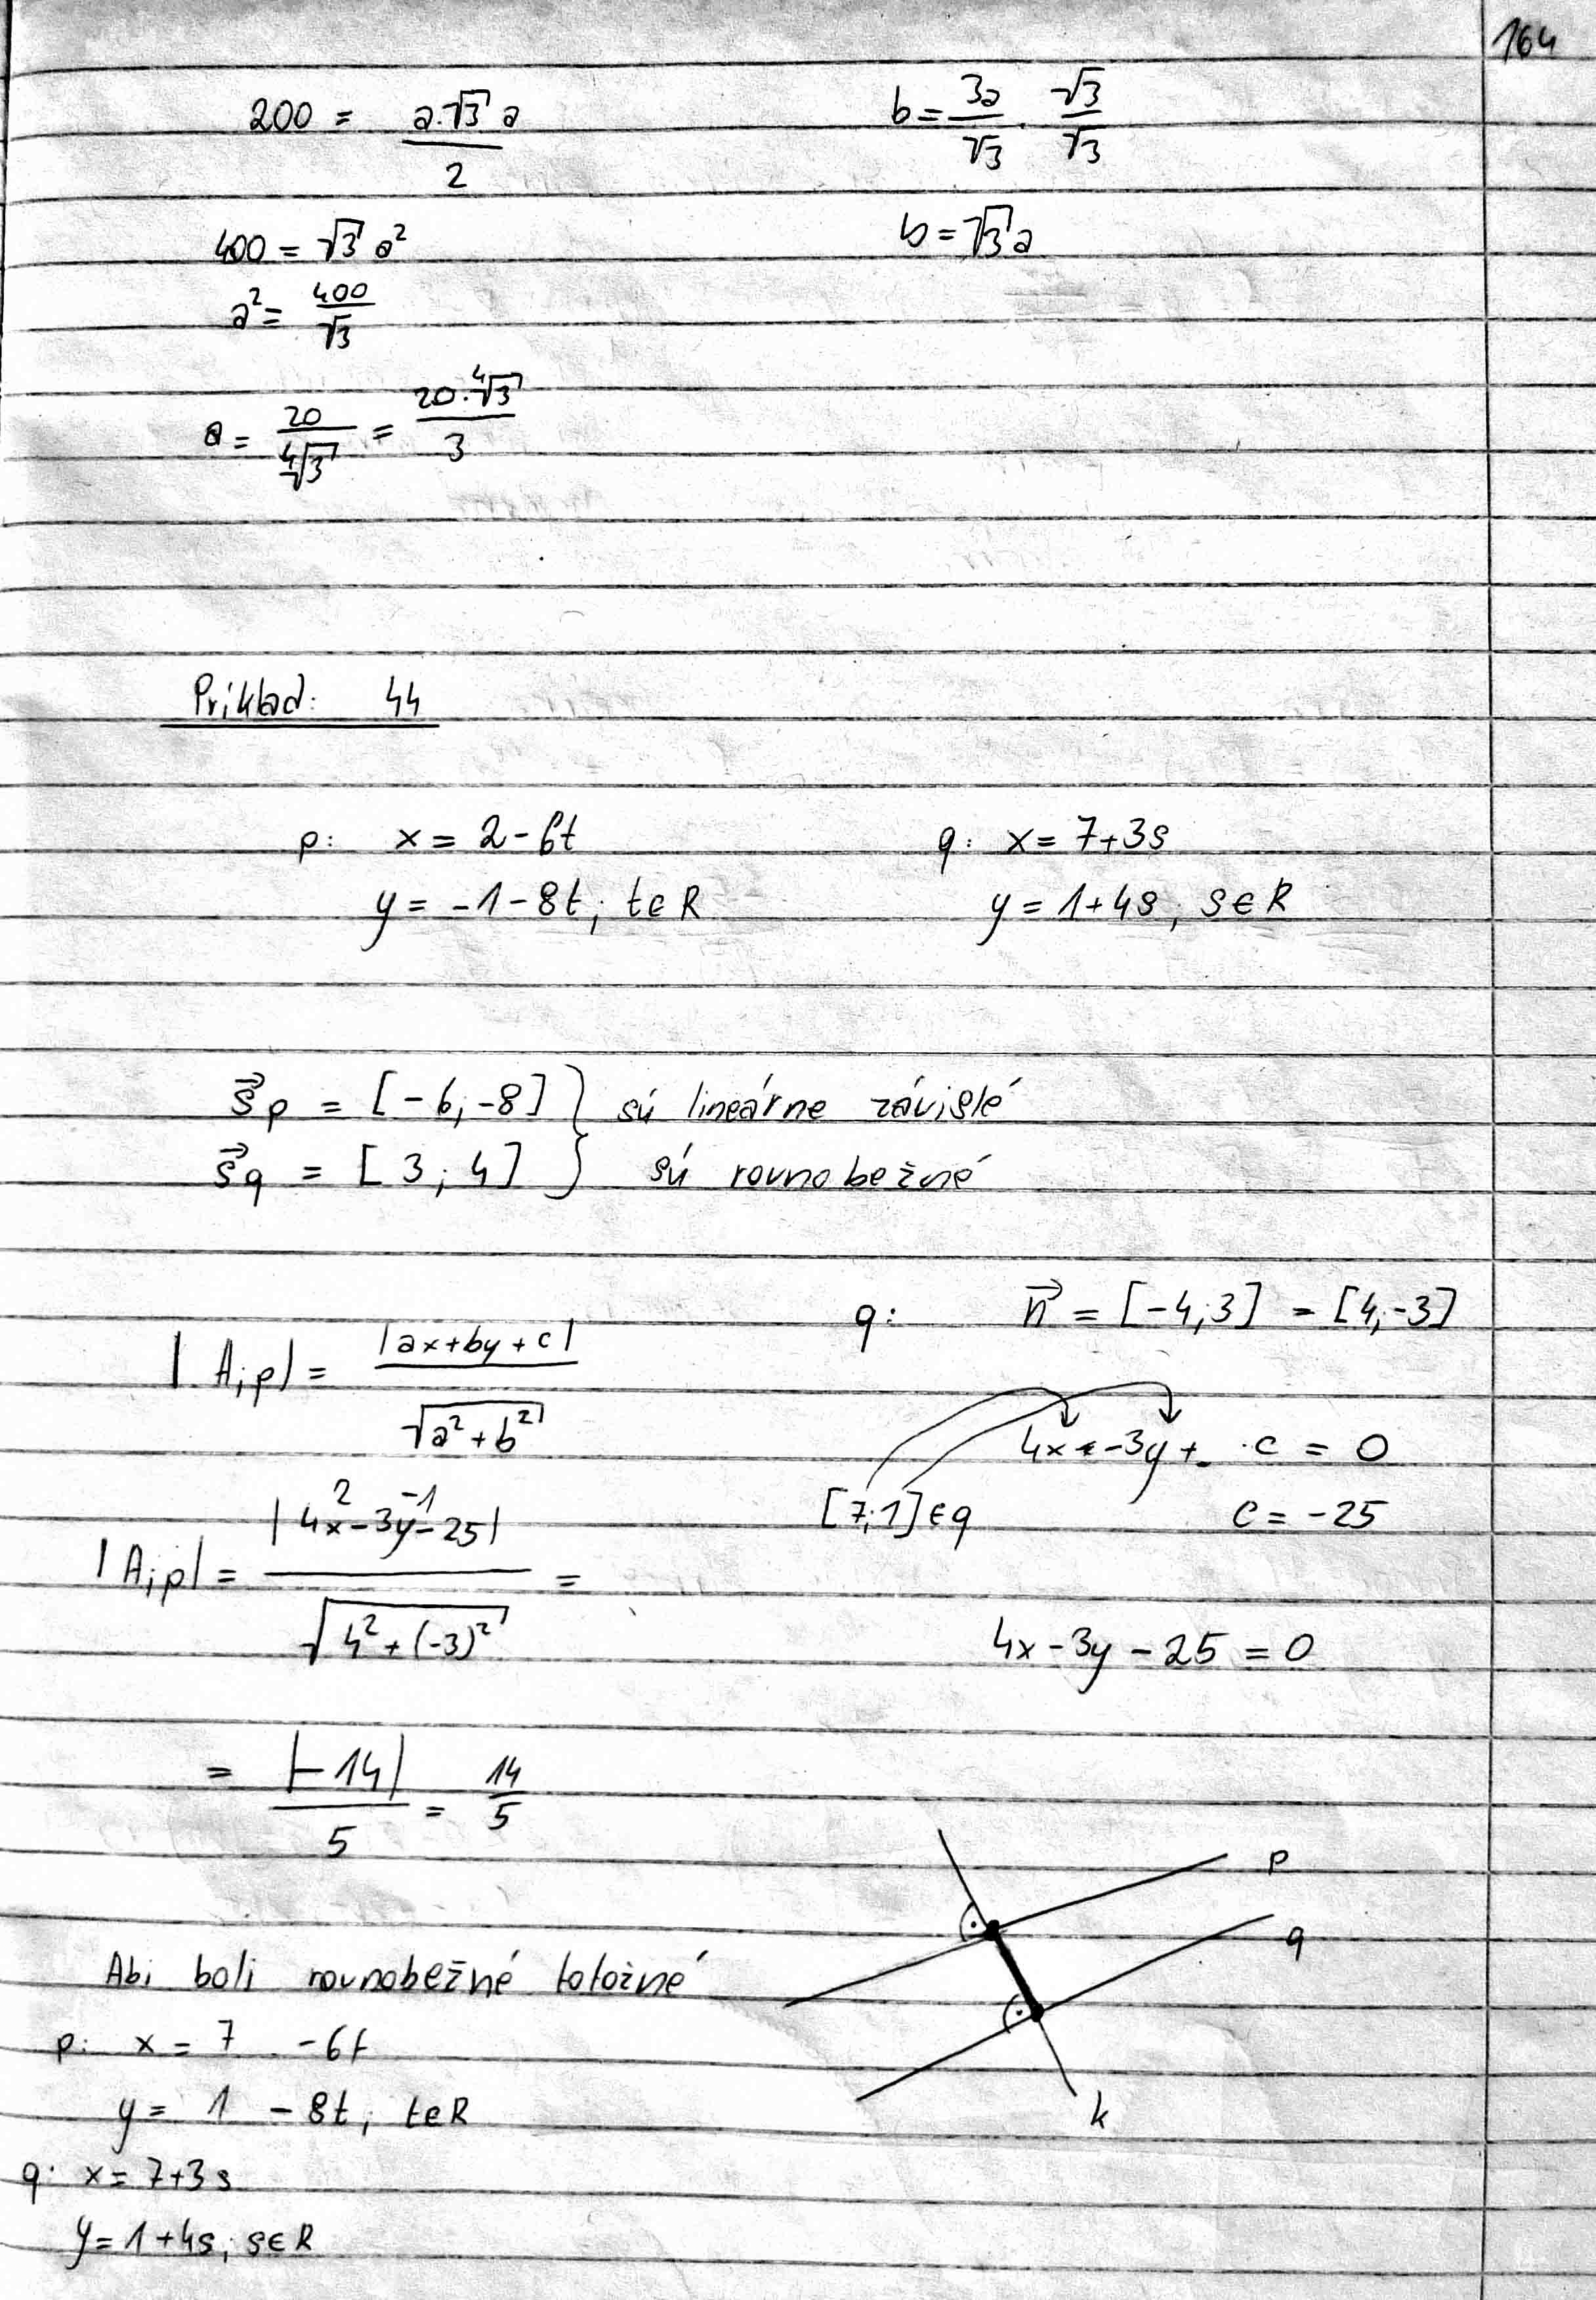 164
200 = a·√3 a / 2
b = 3a/√3 · √3/√3
400 = √3 a²
b = √3 a
a² = 400/√3
a = 20/⁴√3 = 20·⁴√3/3
Príklad: 44
p: x = 2 - 6t
q: x = 7+3s
y = -1 - 8t; t∈R
y = 1+4s; s∈R
s⃗p = [-6; -8] } sú lineárne závislé
s⃗q = [3; 4] } sú rovnobežné
q: n⃗ = [-4;3] = [4;-3]
|A;p| = |ax+by+c| / √(a²+b²)
4x + -3y + c = 0
[7;1]∈q
c = -25
2 -1
|A;p| = |4x-3y-25| / √(4²+(-3)²) =
4x - 3y - 25 = 0
= |-14| / 5 = 14/5
p
q
k
Abi boli rovnobežné totožné
p: x = 7 - 6t
y = 1 - 8t; t∈R
q: x = 7+3s
y = 1+4s; s∈R